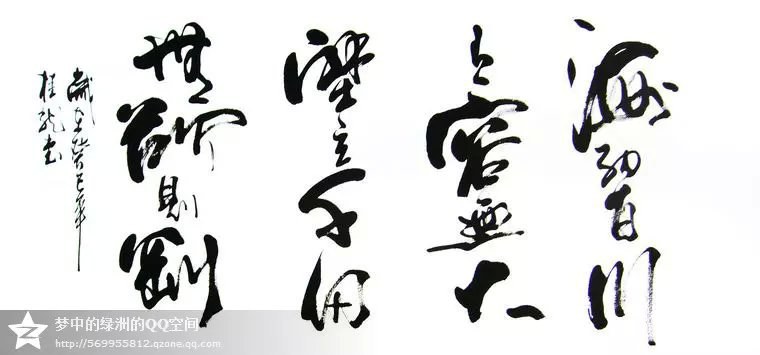 海納百川
有容迺大
壁立千仞
無欲則剛
歲在癸巳年
桂龍書
梦中的绿洲的QQ空间
http://569955812.qzone.qq.com